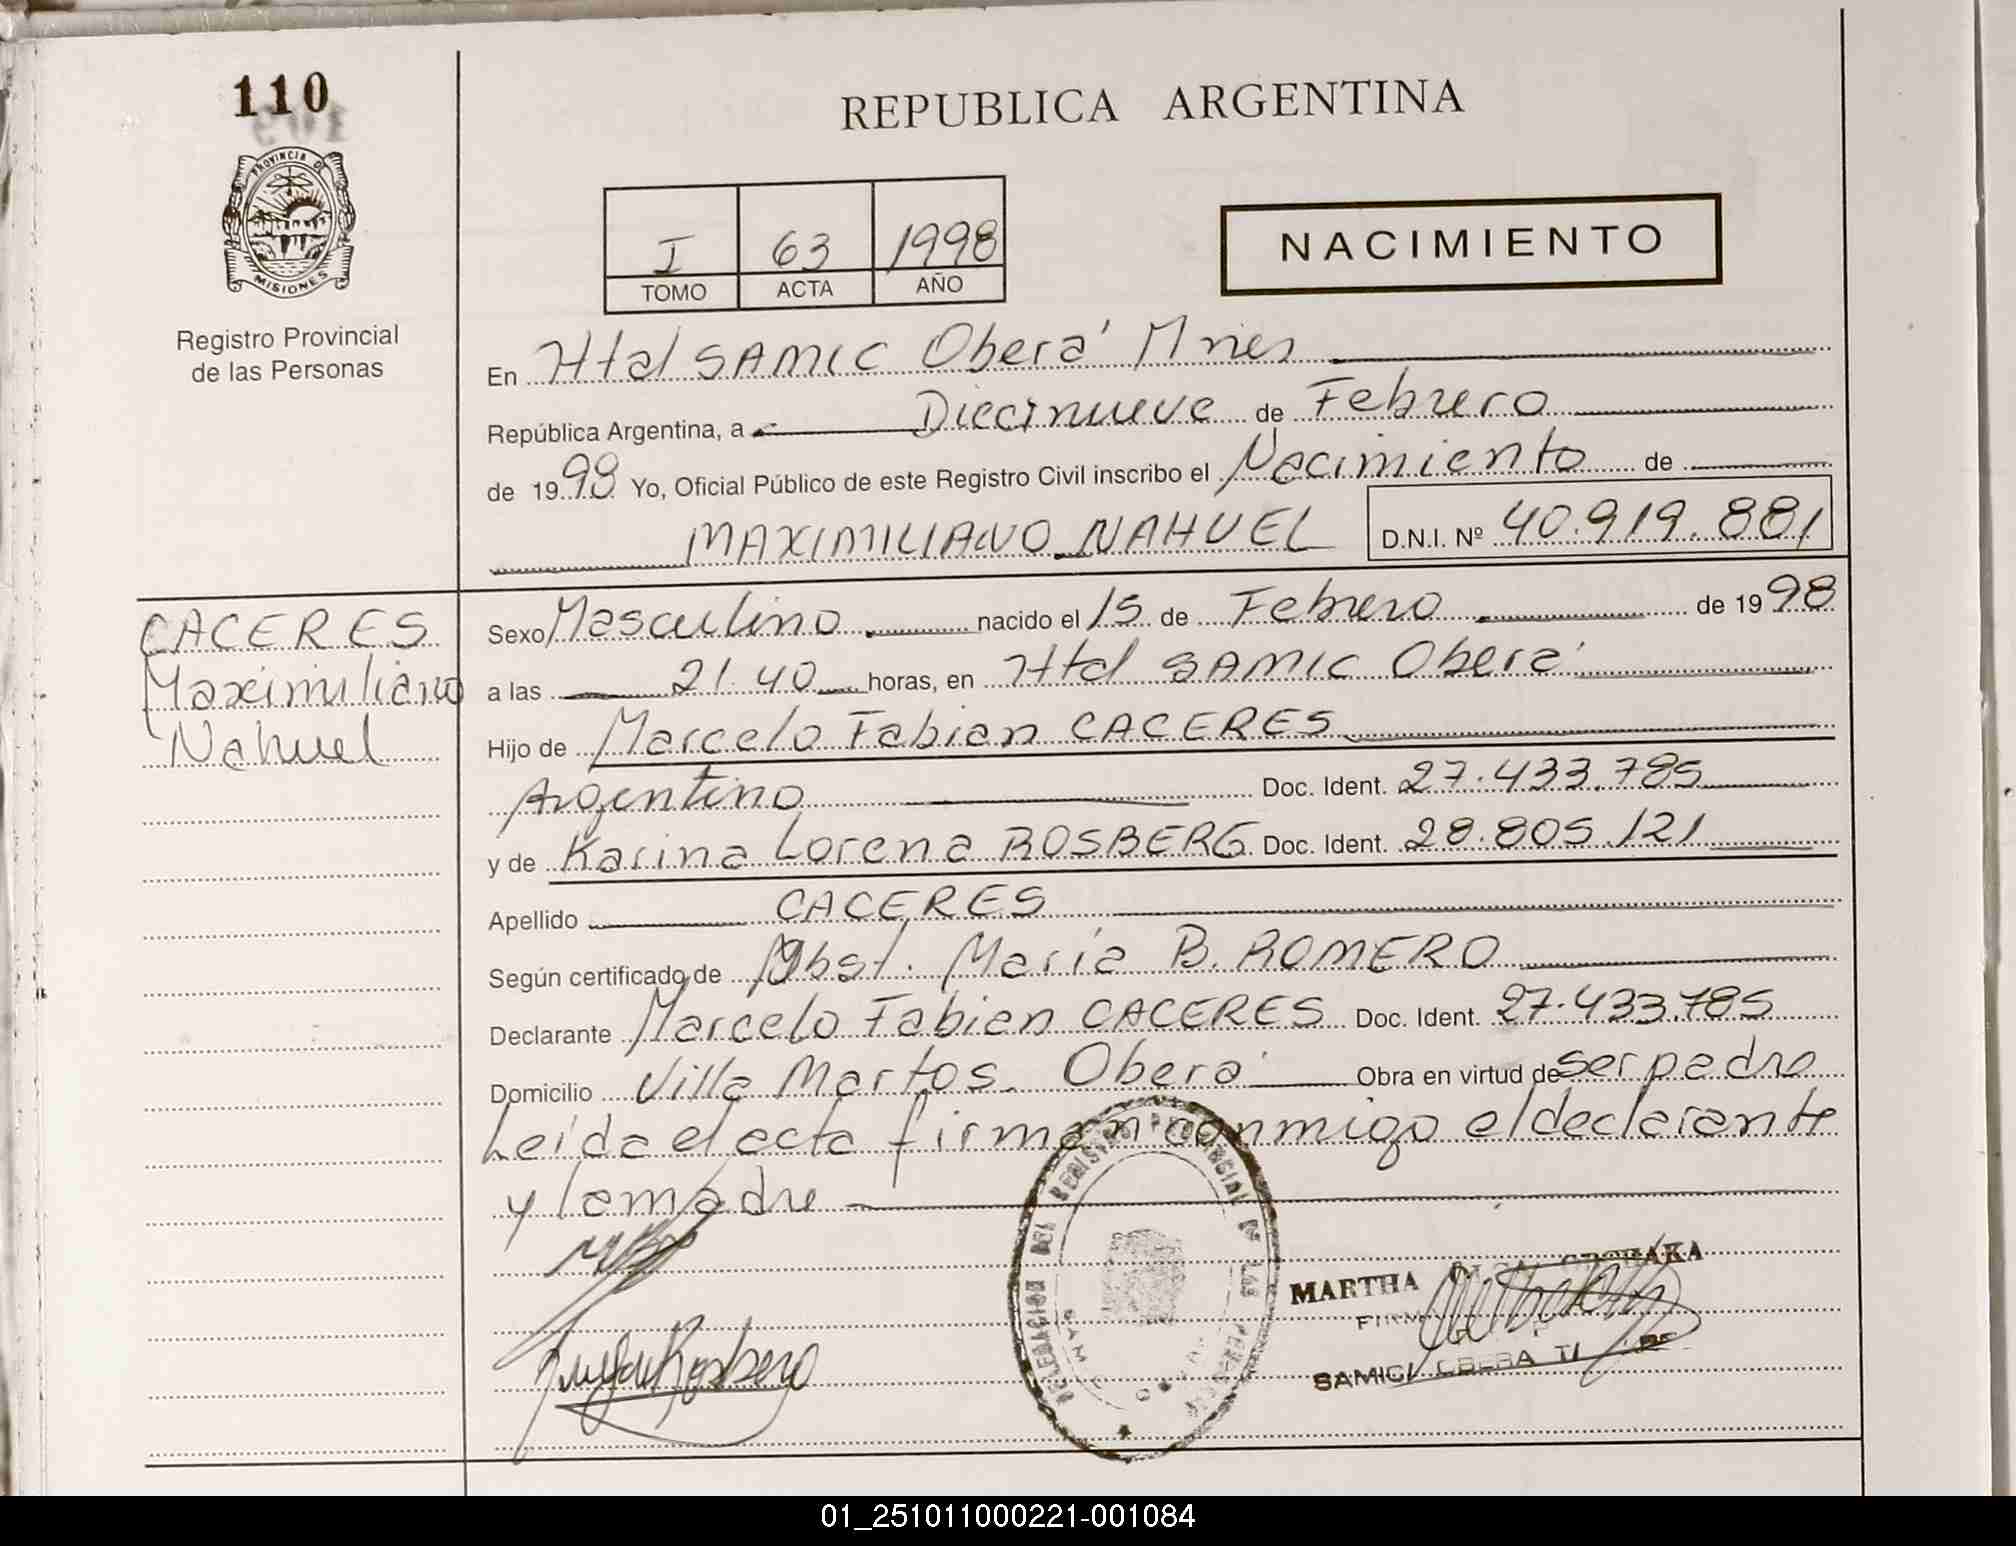 110
REPUBLICA ARGENTINA
PROVINCIA DE
MISIONES
Registro Provincial
de las Personas
I 63 1998
TOMO ACTA AÑO
NACIMIENTO
En Htal SAMIC Oberá Mnes
República Argentina, a Diecinueve de Febrero
de 1998 Yo, Oficial Público de este Registro Civil inscribo el Nacimiento de
MAXIMILIANO NAHUEL D.N.I. Nº 40.919.881
CACERES
Maximiliano
Nahuel
Sexo Masculino nacido el 15 de Febrero de 1998
a las 21.40 horas, en Htal SAMIC Oberá
Hijo de Marcelo Fabian CACERES
Argentino Doc. Ident. 27.433.785
y de Karina Lorena ROSBERG Doc. Ident. 28.805.121
Apellido CACERES
Según certificado de Obst. María B. ROMERO
Declarante Marcelo Fabian CACERES Doc. Ident. 27.433.785
Domicilio Villa Martos. Oberá Obra en virtud de ser padre
Leída el acta firman conmigo el declarante
y la madre
DELEGACION DEL REGISTRO PROVINCIAL DE LAS
MARTHA
SAMIC OBERA
Rosberg
01_251011000221-001084